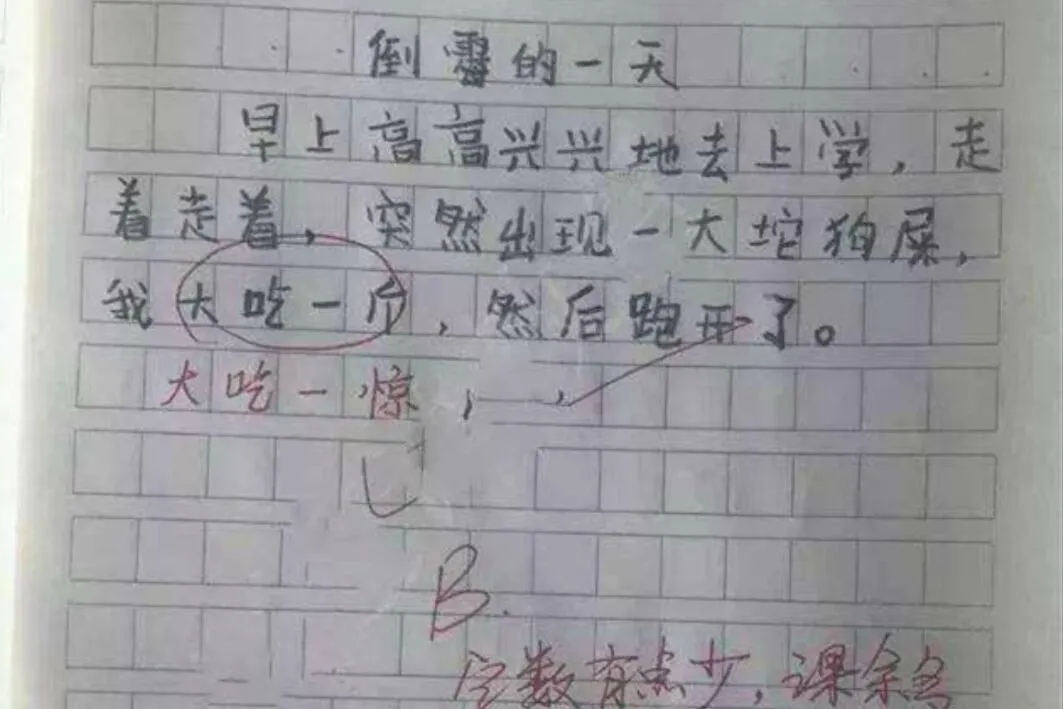 倒霉的一天
早上高高兴兴地去上学,走
着走着,突然出现一大坨狗屎,
我大吃一斤,然后跑开了。
大吃一惊,
B.
字数有点少,课余多